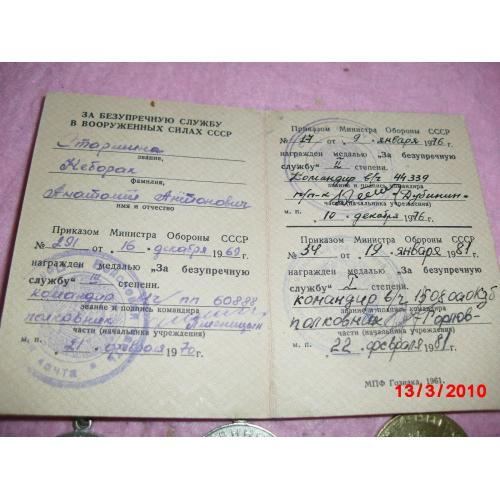 ЗА БЕЗУПРЕЧНУЮ СЛУЖБУ
В ВООРУЖЕННЫХ СИЛАХ СССР
Старшина
звание,
Жеборак
фамилия,
Анатолий Антонович
имя и отчество
Приказом Министра Обороны СССР
№ 291 от 16 декабря 1969
награжден медалью „За безупречную
службу" III степени.
командир в/ч пп 60888
звание и подпись командира
полковник Пшеницын
части (начальника учреждения)
м. п. 21 февраля 1970 г.
почта
Приказом Министра Обороны СССР
№ 17 от 9 января 1976 г.
награжден медалью „За безупречную
службу" II степени.
Командир в/ч 44339
звание и подпись командира
п/п-к /Дубинин-
части (начальника учреждения)
м. п. 10 декабря 1976 г.
Приказом Министра Обороны СССР
№ 34 от 19 января 1981
награжден медалью „За безупречную
службу" I степени.
командир в/ч
звание и подпись командира
полковник Горлов-
части (начальника учреждения)
м. п. 22 февраля 1981 г.
МПФ Гознака, 1961.
13/3/2010